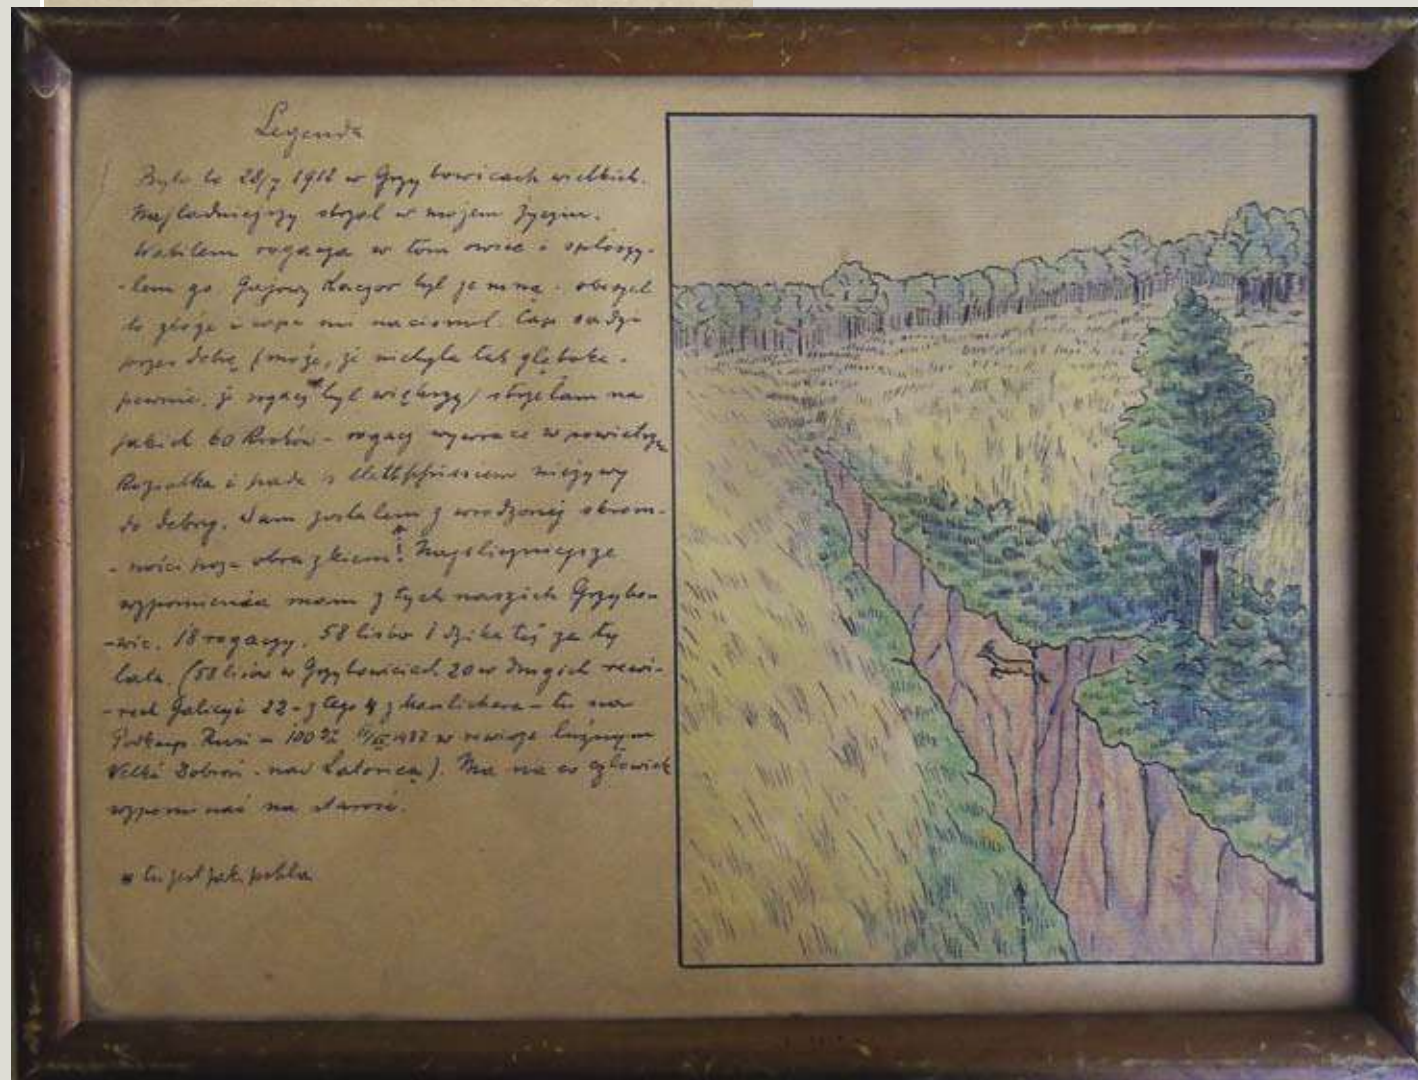 Legenda
Było to 28/7 1912 w Grzybowicach wielkich.
Najładniejszy strzał w mojem życiu.
Wabiłem rogacza w tom owies i spłoszy-
-łem go. Gajowy Kaczor był ze mną - obszedł
to zboże i kopa mi nacisnął. Cap sadzi
przez debrę (może, że niebyła tak głęboka -
pewnie, że rogacz był większy) strzelam na
jakich 60 kroków - rogacz wywraca w powietrzu
Koziołka i pada z nieżywy
do debry. Sam zostałem z wrodzonej skrom-
-ności poza obrazkiem! Najśliczniejsze
wspomnienia mam z tych naszych Grzybo-
-wic. 18 rogaczy, 58 lisów i dzika też za ty
lata. (58 lisów w Grzybowicach 20 w drugich rewi-
-rach Galicyi 22 - z tego 4 z Manlichera - tu na
Podkarp. Rusi = 100 w rewirze łużnym
Velké Dobroń - nad Latoricą). Ma na co człowiek
wspominać na starość.
* tu jest jak pchła